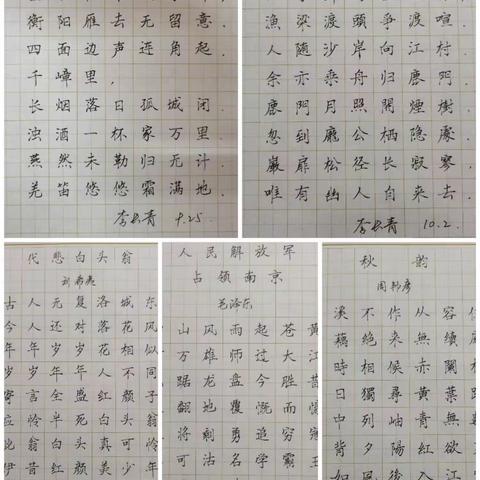 衡阳雁去无留意.
四面边声连角起.
千嶂里,
长烟落日孤城闭.
浊酒一杯家万里
燕然未勒归无计.
羌笛悠悠霜满地.
李长青 9.25.
漁梁渡頭爭渡喧.
人随沙岸向江村.
余亦乘舟归鹿門.
鹿門月照開煙樹.
忽到龐公栖隐處.
巖扉松径长寂寥.
唯有幽人自来去.
李长青 10.2.
代悲白头翁
刘希夷
古人无复洛城东
今人还对落花风
年年岁岁花相似
岁岁年年人不同
寄言全盛红颜子
应怜半死白头翁
此翁白头真可怜
伊昔红颜美少年
人民解放军
占领南京
毛泽东
山风雨起苍黄
万雄师过大江
踞龙盘今胜昔
翻地覆慨而慷
将剩勇追穷寇
可沽名学霸王
秋韵
周邦彦
溪不作从容
藕絶来無續
時相候赤闌
日獨尋黄葉
中列岫青無
背夕陽紅欲
如风後入江